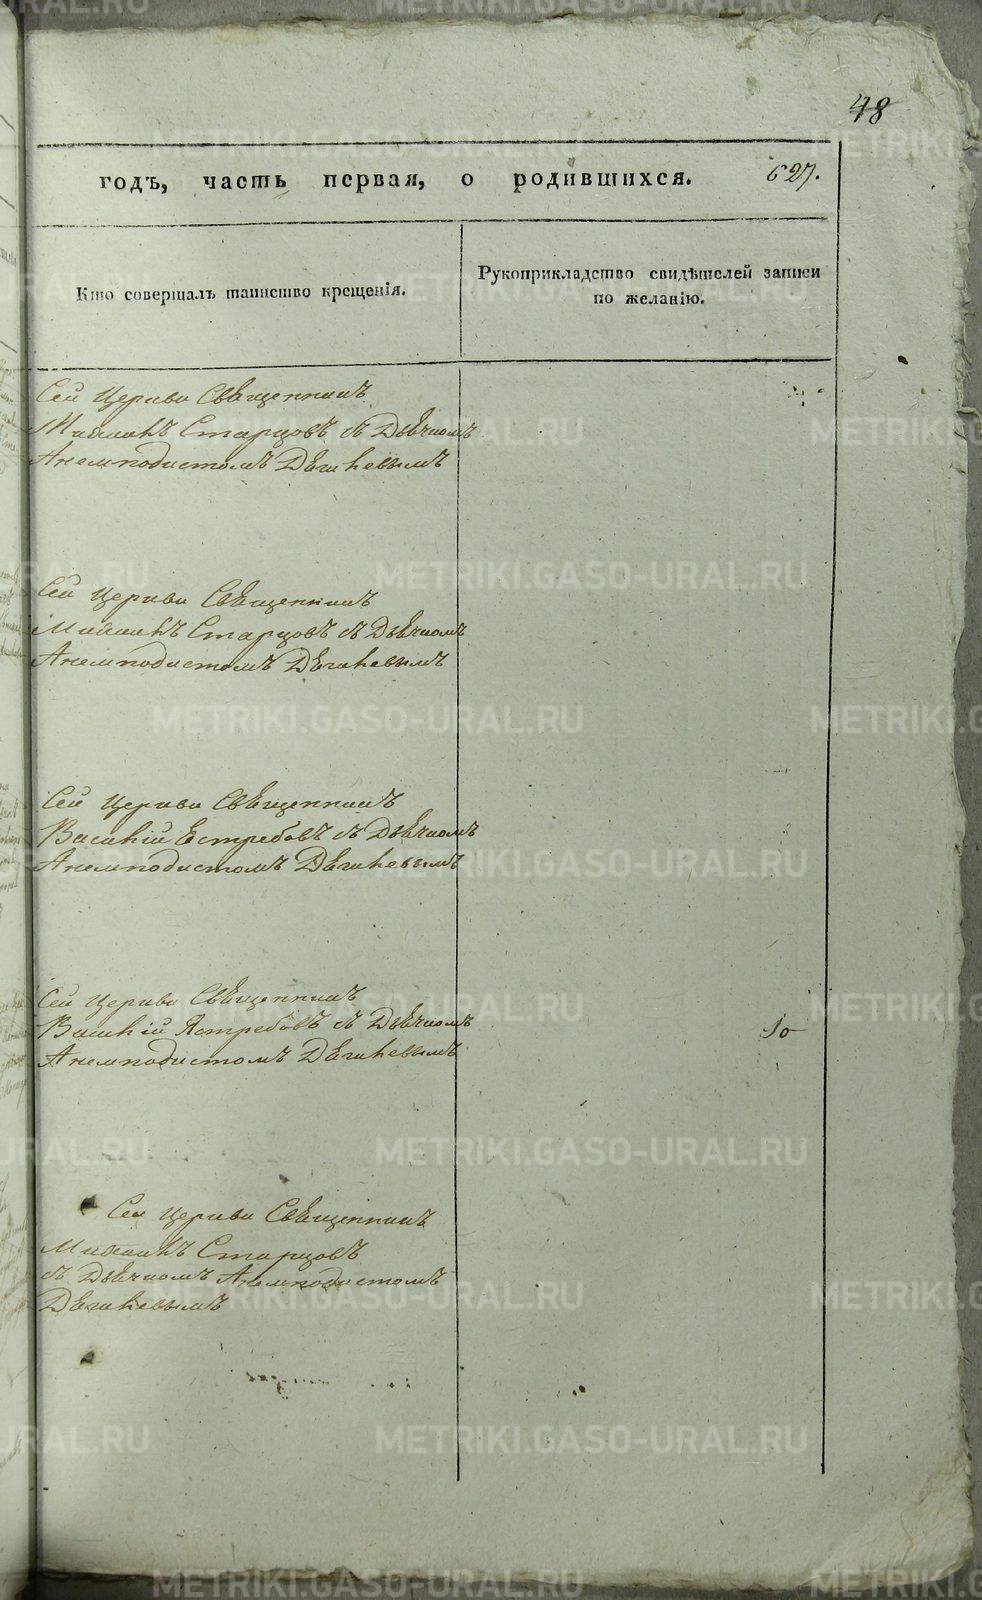 48
годъ, часть первая, о родившихся. 627.
Кто совершалъ таинство крещенія.
Рукоприкладство свидѣтелей записи
по желанію.
Сей Церкви Священникъ
Михаилъ Старцовъ съ Дьячкомъ
Анемподистомъ Дягилевымъ
Сей Церкви Священникъ
Михаилъ Старцовъ съ Дьячкомъ
Анемподистомъ Дягилевымъ
Сей Церкви Священникъ
Василій Естребовъ съ Дьячкомъ
Анемподистомъ Дягилевымъ
Сей Церкви Священникъ
Василій Ястребовъ съ Дьячкомъ
Анемподистомъ Дягилевымъ
10
Сей Церкви Священникъ
Михаилъ Старцовъ
съ Дьячкомъ Анемподистомъ
Дягилевымъ
METRIKI.GASO-URAL.RU